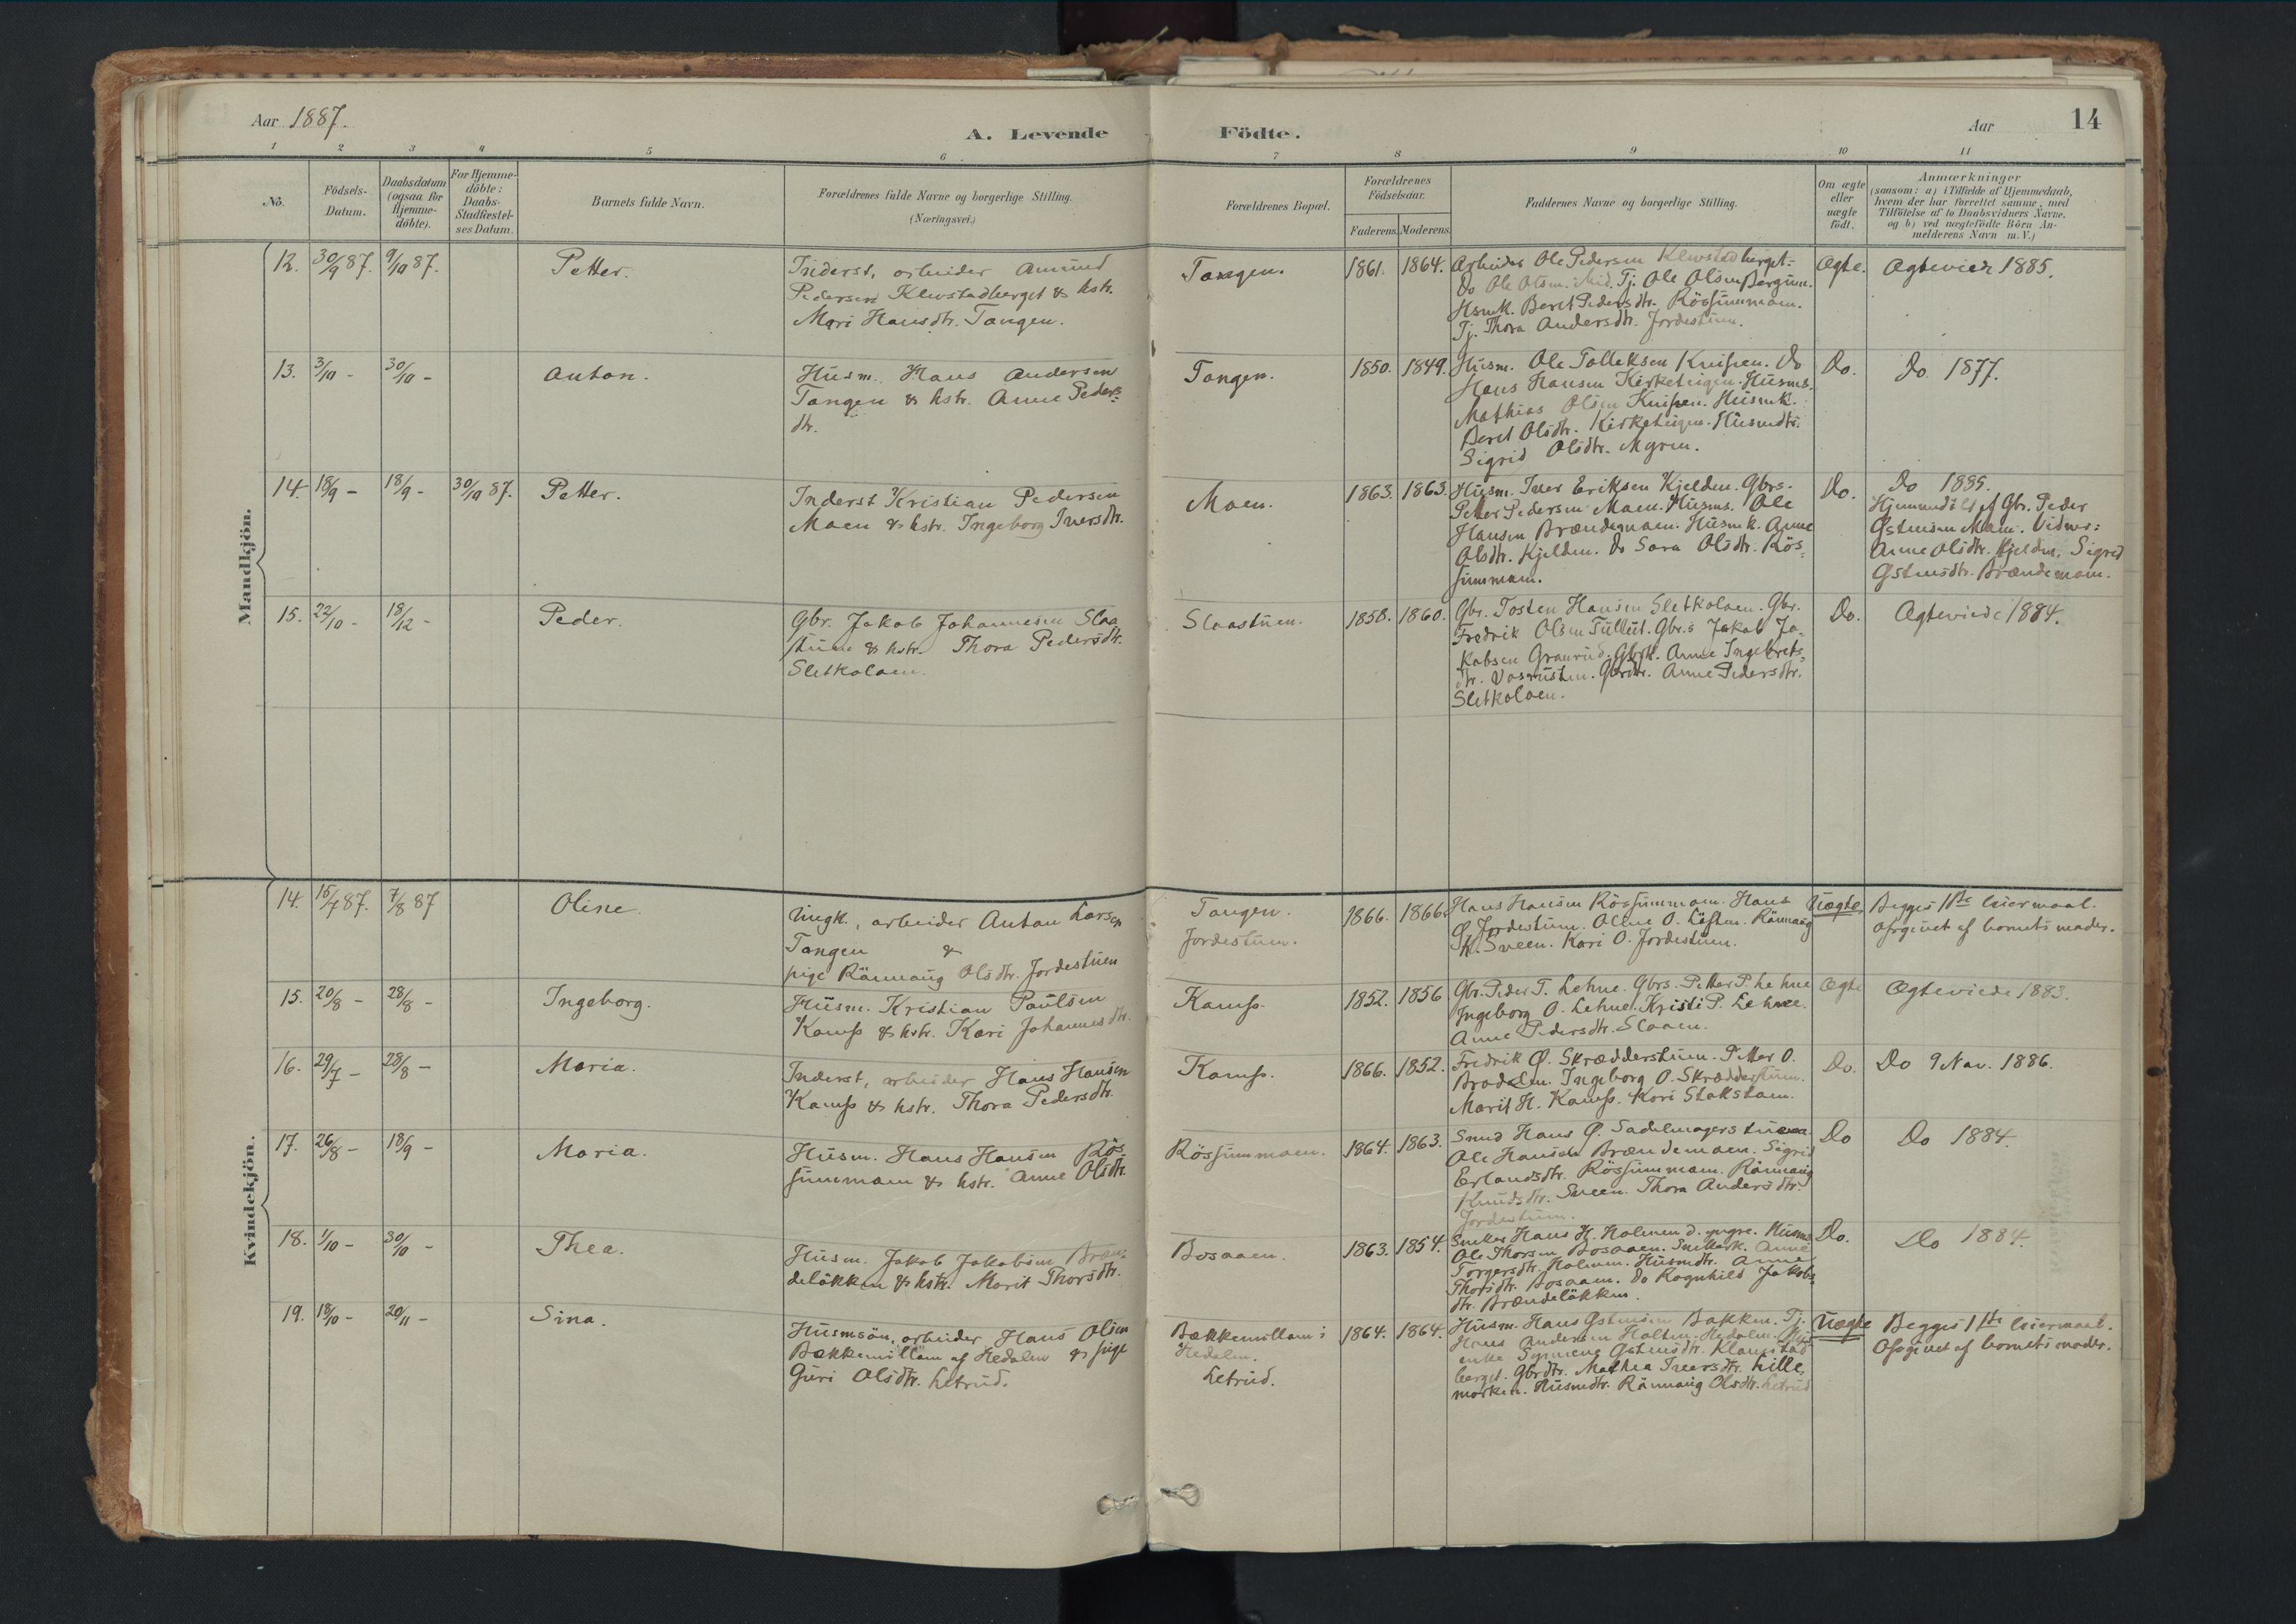 Aar 1887.
A. Levende Födte.
Aar
14
1 2 3 4 5 6 7 8 9 10 11
No.
Födsels-Datum.
Daabsdatum (ogsaa for Hjemme-döbte).
For Hjemme-döbte: Daabs-Stadfæstel-ses Datum.
Barnets fulde Navn.
Forældrenes fulde Navne og borgerlige Stilling. (Næringsvei.)
Forældrenes Bopæl.
Forældrenes Födselsaar.
Faderens. Moderens.
Faddernes Navne og borgerlige Stilling.
Om ægte eller uægte födt.
Anmærkninger
(saasom: a) i Tilfælde af Hjemmedaab,
hvem der har forrettet samme, med
Tilföielse af to Daabsvidners Navne,
og b) ved uægtefödte Börn An-
melderens Navn m. V.)
Mandkjön.
12. 30/9 87. 9/10 87. Petter.
Inderst, arbeider Amund
Pedersen Klevstadberget & hstr.
Mari Hansdtr. Tangen.
Tangen. 1861. 1864.
Arbeider Ole Pedersen Klevstadberget.
Do Ole Olsen. Tj. Ole Olsen
Hsmk. Beret Pedersdtr. Rössummoen.
Tj. Thora Andersdtr. Jordestuen.
Ægte. Ægteviede 1885.
13. 3/10 - 30/10 - Anton.
Husm. Hans Andersen
Tangen & hstr. Anne Peders-
dtr.
Tangen. 1850. 1849.
Husm. Ole Tolleksen Knipen. Do
Hans Hansen Kirketeigen. Husms.
Mathias Olsen Knipen. Husmk.
Beret Olsdtr. Kirketeigen. Husmdtr.
Sigrid Olsdtr. Myren.
Do. Do 1877.
14. 18/9 - 18/9 - 30/10 87. Petter.
Inderst Kristian Pedersen
Moen & hstr. Ingeborg Iversdtr.
Moen. 1863. 1863.
Husm. Iver Eriksen Kjelden. Gbrs.
Petter Pedersen Moen. Husms. Ole
Hansen Brændemoen. Husmk. Anne
Olsdtr. Kjelden. Do Sara Olsdtr. Rös-
summoen.
Do. Do 1885.
Hjemmedöbt af Gbr. Peder
Østensen Moen. Vidner:
Anne Olsdtr. Kjelden, Sigrid
Østensdtr. Brændemoen.
15. 22/10 - 18/12 - Peder.
Gbr. Jakob Johannesen Slaa
stuen & hstr. Thora Pedersdtr.
Sletkolaen.
Slaastuen. 1858. 1860.
Gbr. Tosten Hansen Sletkolaen. Gbr.
Fredrik Olsen Tullut. Gbr.s Jakob Ja-
kobsen Granrud. Gbrk. Anne Ingebrets-
dtr. Vasrusten. Gbrdtr. Anne Pedersdtr.
Sletkolaen.
Do. Ægteviede 1884.
Kvindekjön.
14. 15/7 87. 7/8 87 Oline.
Ungk., arbeider Anton Larsen
Tangen &
pige Rönnaug Olsdtr. Jordestuen
Tangen.
Jordestuen.
1866. 1866.
Hans Hansen Rössummoen. Hans
Ø. Jordestuen. Oline O. Löften. Rönnaug
K. Sveen. Kari O. Jordestuen.
Uægte. Begges 1ste leiermaal.
Opgivet af barnets moder.
15. 20/8 - 28/8 - Ingeborg.
Husm. Kristian Paulsen
Kamp & hstr. Kari Johannesdtr.
Kamp. 1852. 1856
Gbr. Peder T. Lehne. Gbrs. Petter P. Lehne
Ingeborg O. Lehne. Kristi P. Lehne.
Anne Pedersdtr. Slaaen.
Ægte Ægteviede 1883.
16. 29/7 - 28/8 - Maria.
Inderst, arbeider Hans Hansen
Kamp & hstr. Thora Pedersdtr.
Kamp. 1866. 1852.
Fredrik Ø. Skrædderstuen. Petter O.
Bradalen. Ingeborg O. Skrædderstuen.
Marit H. Kamp. Kari Stakstam.
Do. Do 9 Nov. 1886.
17. 26/8 - 18/9 - Maria.
Husm. Hans Hansen Rös-
summoen & hstr. Anne Olsdtr.
Rössummoen. 1864. 1863.
Smed Hans Ø. Sadelmagerstuen.
Ole Hansen Brændemoen. Sigrid
Erlandsdtr. Rössummoen. Rönnaug
Knudsdtr. Sveen. Thora Andersdtr.
Jordestuen.
Do Do 1884.
18. 1/10 - 30/10 - Thea.
Husm. Jakob Jakobsen Bræn-
delökken & hstr. Marit Thorsdtr.
Bosaaen. 1863. 1854.
Snekker Hans H. Holmen d. yngre. Husms.
Ole Thorsen Bosaaen. Snekkerk. Anne
Torgersdtr. Holmen. Husmdtr. Anne
Thorsdtr. Bosaaen. Do Ragnhild Jakobs-
dtr. Brændelökken.
Do. Do 1884.
19. 18/10 - 20/11 - Sina.
Husmsön, arbeider Hans Olsen
Bækkemellam af Hedalen & pige
Guri Olsdtr. Letrud.
Bækkemellam i
Hedalen.
Letrud.
1864. 1864.
Husm. Hans Østensen Bakken. Tj.
Hans Andersen Holten Hedalen.
enke Synneve Østensdtr. Klevstad
berget. Gbrdtr. Mathea Iversdtr. Lille
morken. Husmdtr. Rönnaug Olsdtr. Letrud
Uægte Begges 1ste leiermaal.
Opgivet af barnets moder.